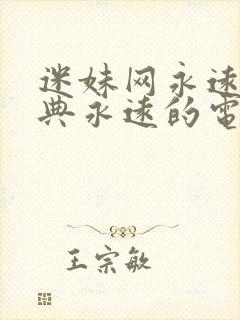 迷妹网永远
典永远的電
王宗敏